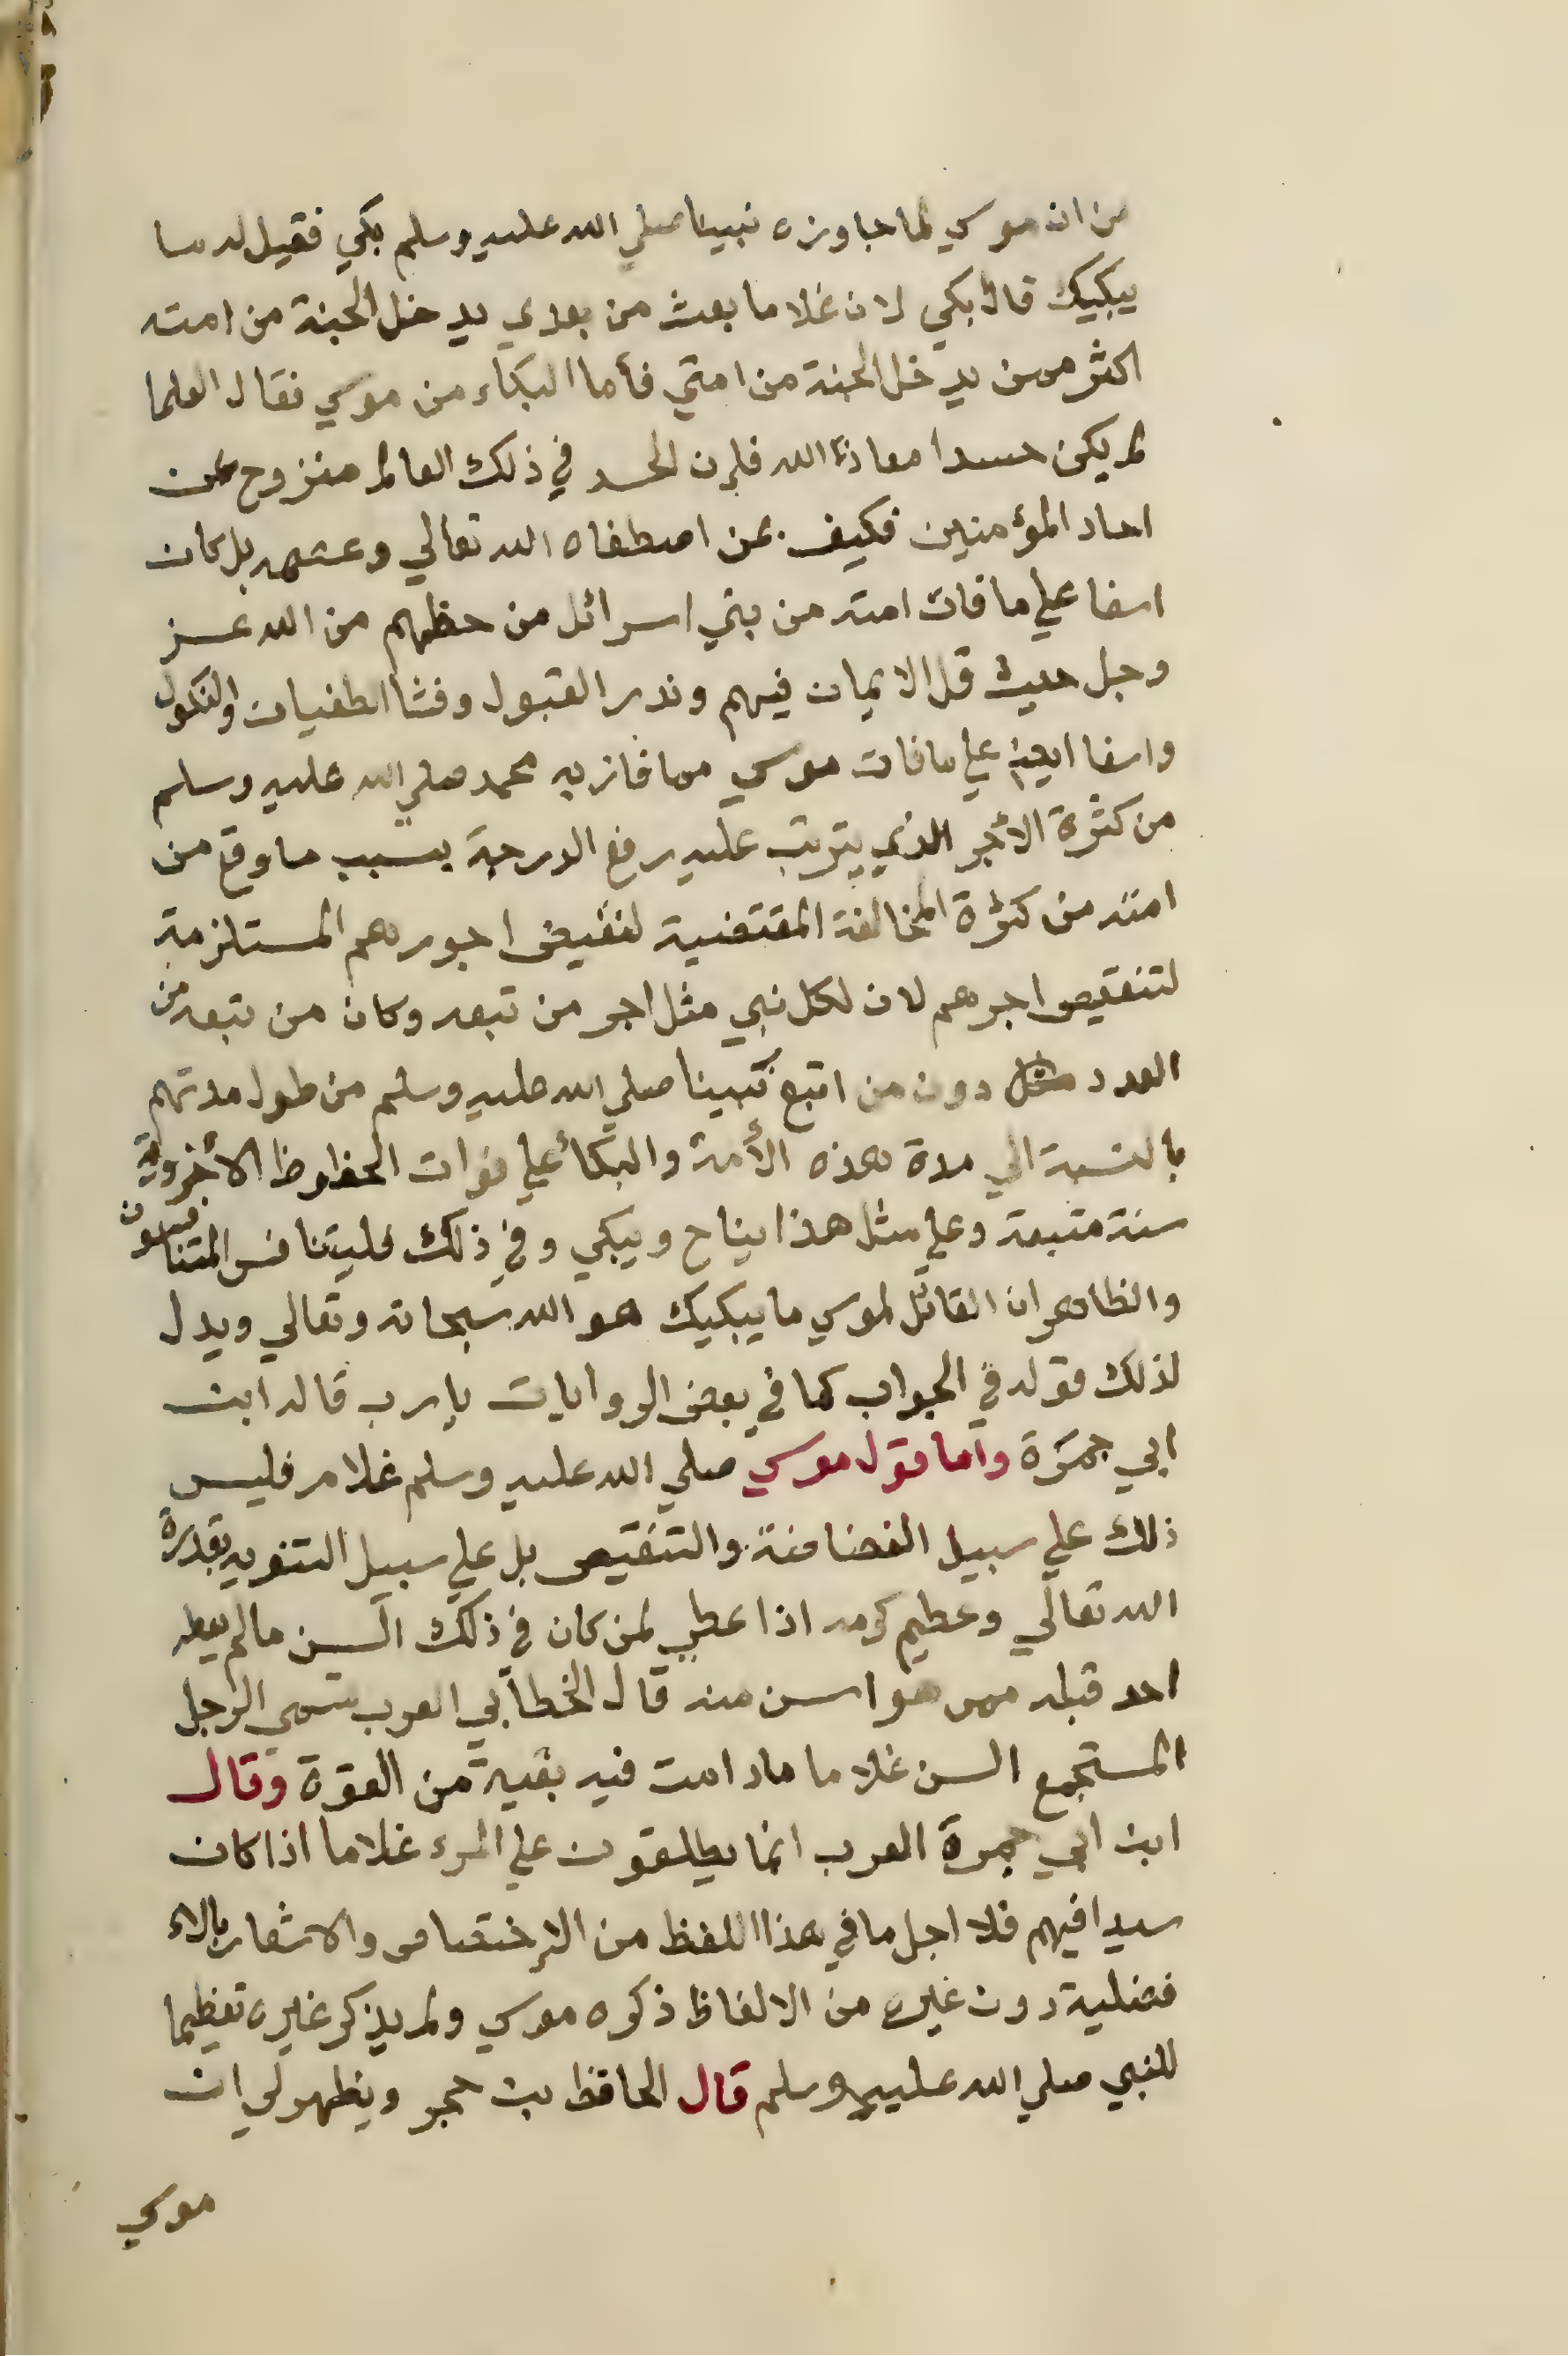 من ان موسي لما جاوزه نبينا صلي الله عليه وسلم بكي فقيل له ما
يبكيك قال ابكي لان غلاما بعث من بعدي يدخل الجنة من امته
اكثر ممن يدخل الجنة من امتي فأما البكاء من موسي فقال العلما
لم يكن حسدا معاذ الله فإن الحسد في ذلك العالم منزوح عن
احاد المؤمنين فكيف بمن اصطفاه الله تعالي وعصمه بل كان
اسفا علي ما فات امته من بني اسرائل من حظهم من الله عز
وجل حيث قل الايمان فيهم وندر القبول وفشا الطغيان والنكول
واسفا ايضا علي ما فات موسي مما فاز به محمد صلي الله عليه وسلم
من كثرة الأجر الذي يترتب عليه رفع الدرجة بسبب ما وقع من
امته من كثرة المخالفة المقتضية لتنقيص اجورهم المستلزمة
لتنقيص اجرهم لان لكل نبي مثل اجر من تبعه وكان من تبعه من
العدد دون من اتبع نبينا صلي الله عليه وسلم من طول مدتهم
بالنسبة الي مدة هذه الأمة والبكأ علي فوات الحظوظ الأخروية
سنة متبعة وعلي مثل هذا يناح ويبكي وفي ذلك فليتنافس المتنافسون
والظاهر ان القائل لموسي ما يبكيك هو الله سبحانه وتعالي ويدل
لذلك قوله في الجواب كما في بعض الروايات يا رب قاله ابن
ابي جمرة وأما قول موسي صلي الله عليه وسلم غلام فليس
ذلك علي سبيل الغضاضة والتنقيص بل علي سبيل التنويه بقدرة
الله تعالي وعظيم كرمه اذا عطي لمن كان في ذلك السن مالم يعطه
احد قبله ممن هو اسن منه قال الخطابي العرب تسمي الرجل
المستجمع السن غلاما مادامت فيه بقية من القوة وقال
ابن ابي جمرة العرب انما يطلقون علي المرء غلاما اذا كان
سيدا فيهم فلا اجل ما في هذا اللفظ من الإختصاص والاشعار بالا
فضلية دون غيره من الالفاظ ذكره موسي ولم يذكر غيره تعظيما
للنبي صلي الله عليه وسلم قال الحافظ بن حجر ويظهر لي ان
موسي